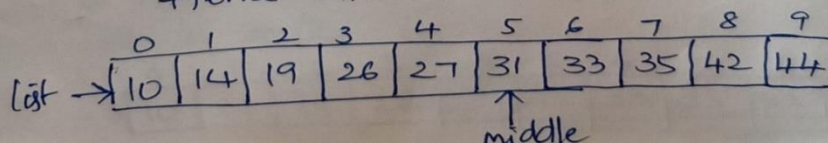 0 1 2 3 4 5 6 7 8 9
list → 10 14 19 26 27 31 33 35 42 44
middle